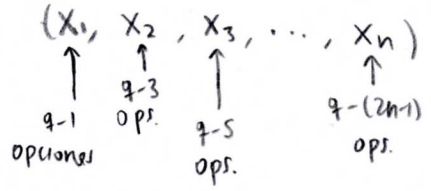 (X₁, X₂, X₃, ..., Xₙ)
q-1 opciones
q-3 ops.
q-5 ops.
q-(2n-1) ops.